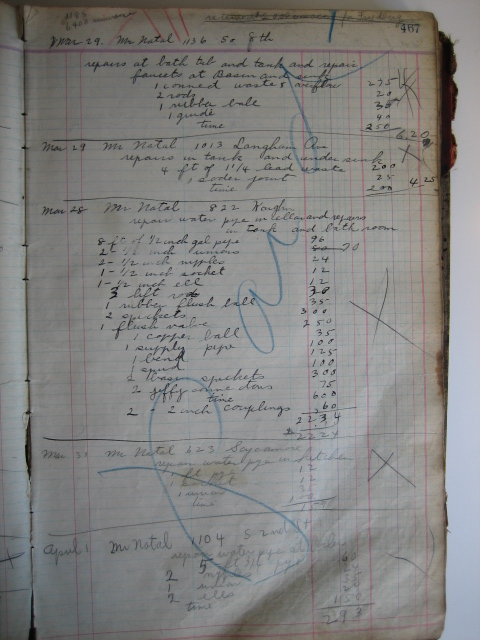 467
Mar 29. Mr Natal 1136 So 8th
repairs at bath tub and tank and repair
faucets at Basin and sink
1 connect waste & overflow 275
2 rods 20
1 rubber ball 35
1 guide 40
time 250
6.20
Mar 29 Mr Natal 1013 Langham Ave
repairs in tank and under sink
4 ft of 1 1/4 lead waste 200
1 soder joint 25
time 200 4.25
Mar 28 Mr Natal 822 Vaughn
repair water pipe in cellar and repairs
in tank and bath room
8 ft of 1/2 inch gal pipe 96
2 - 1/2 inch unions 70
2 - 1/2 inch nipples 24
1 - 1/2 inch socket 12
1 - 1/2 inch ell 12
3 lift rods 30
1 rubber flush ball 35
2 spickets 300
1 flush valve 250
1 copper ball 35
1 supply pipe 100
1 bend 125
1 spud 100
2 basin spickets 300
2 jiffy connections 75
time 600
2 - 2 inch couplings 60
2234
2224
Mar 31 Mr Natal 423 Sycamore
repair water pipe in kitchen
12
12
1 union
time
April 1 Mr Natal 1104 S 2nd St
repair water pipe
5 ft pipe 60
2 nipples
1 union
2 ells
time
293